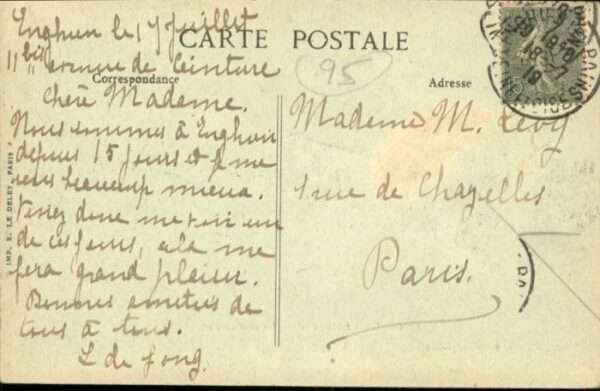 CARTE POSTALE
95
Correspondance
Adresse
Enghien le 17 Juillet
11 bis avenue de Ceinture
Chère Madame.
Nous sommes à Enghien
depuis 15 jours et je me
sens beaucoup mieux.
Venez donc me voir un
de ces jours, cela me
fera grand plaisir.
Bonnes amitiés de
tous à tous.
L de Jong.
Madame M. Lévy
1 rue de Chazelles
Paris.
IMP. E. LE DELEY, PARIS